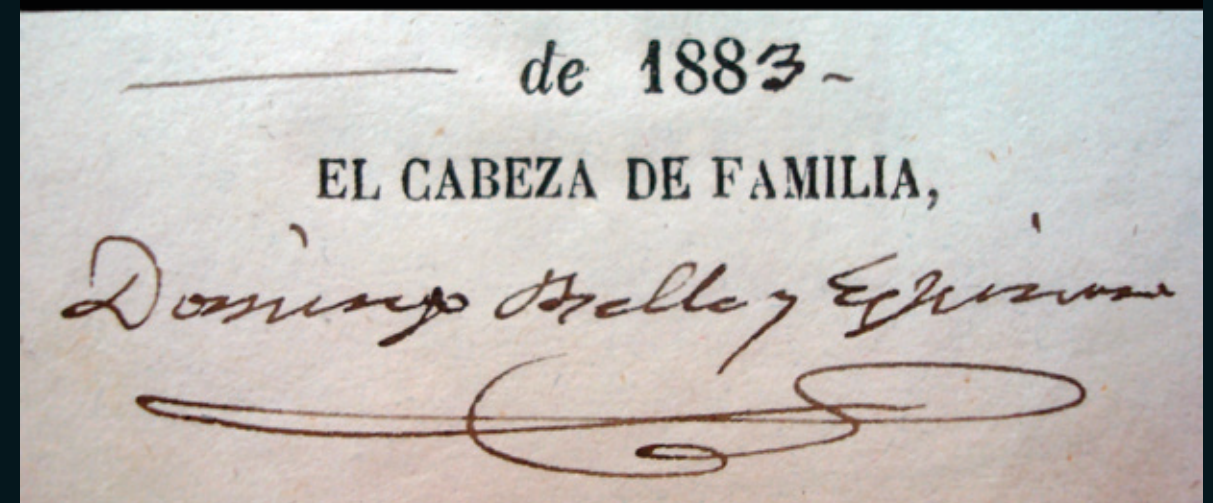 de 1883
EL CABEZA DE FAMILIA,
Domingo Bello y Espinosa